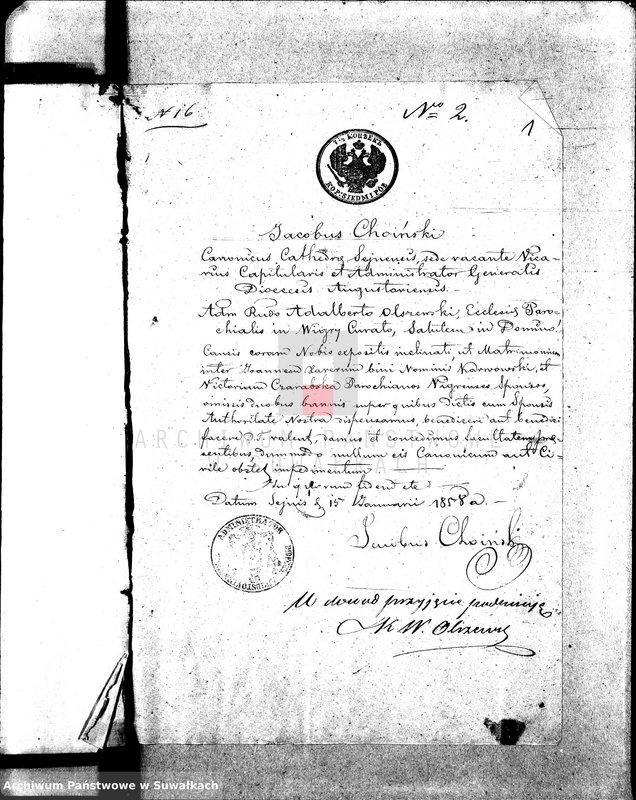 N 16
Nro 2.
1
7½ КОПѢЕКЪ
KOP: SIEDM I PÓŁ
Jacobus Choiński
Canonicus Cathedrę Sejnensis, sede vacante Vica-
rius Capitularis et Administrator Generalis
Dioecesis Augustoviensis.
Adm Rndo Adalberto Olszewski, Ecclesię Paro-
chialis in Wigry Curato, Salutem in Domino!
Causis coram Nobis expositis inclinati, ut Matrimonium
inter Joannem Xaverum bini Nominis Karwowski, et
Victoriam Parochianos Vigrenses, Sponsos,
omissis duobus bannis, super quibus dictis cum Sponsis
Authoritate Nostra dispensamus, benedicere aut benedici
facere possit valent, damus et concedimus facultatem prę-
sentibus, dummodo nullum eis Canonicum aut Ci-
vile obstet impedimentum
In quorum fidem etc
Datum Sejnis d. 15 Januarii 1858 a.
Jacobus Choiński
ADMINISTRATOR
W dowód przyjęcia podpisuję
X W. Olszewski
ARCHIWUM PAŃSTWOWE
W SUWAŁKACH
Archiwum Państwowe w Suwałkach